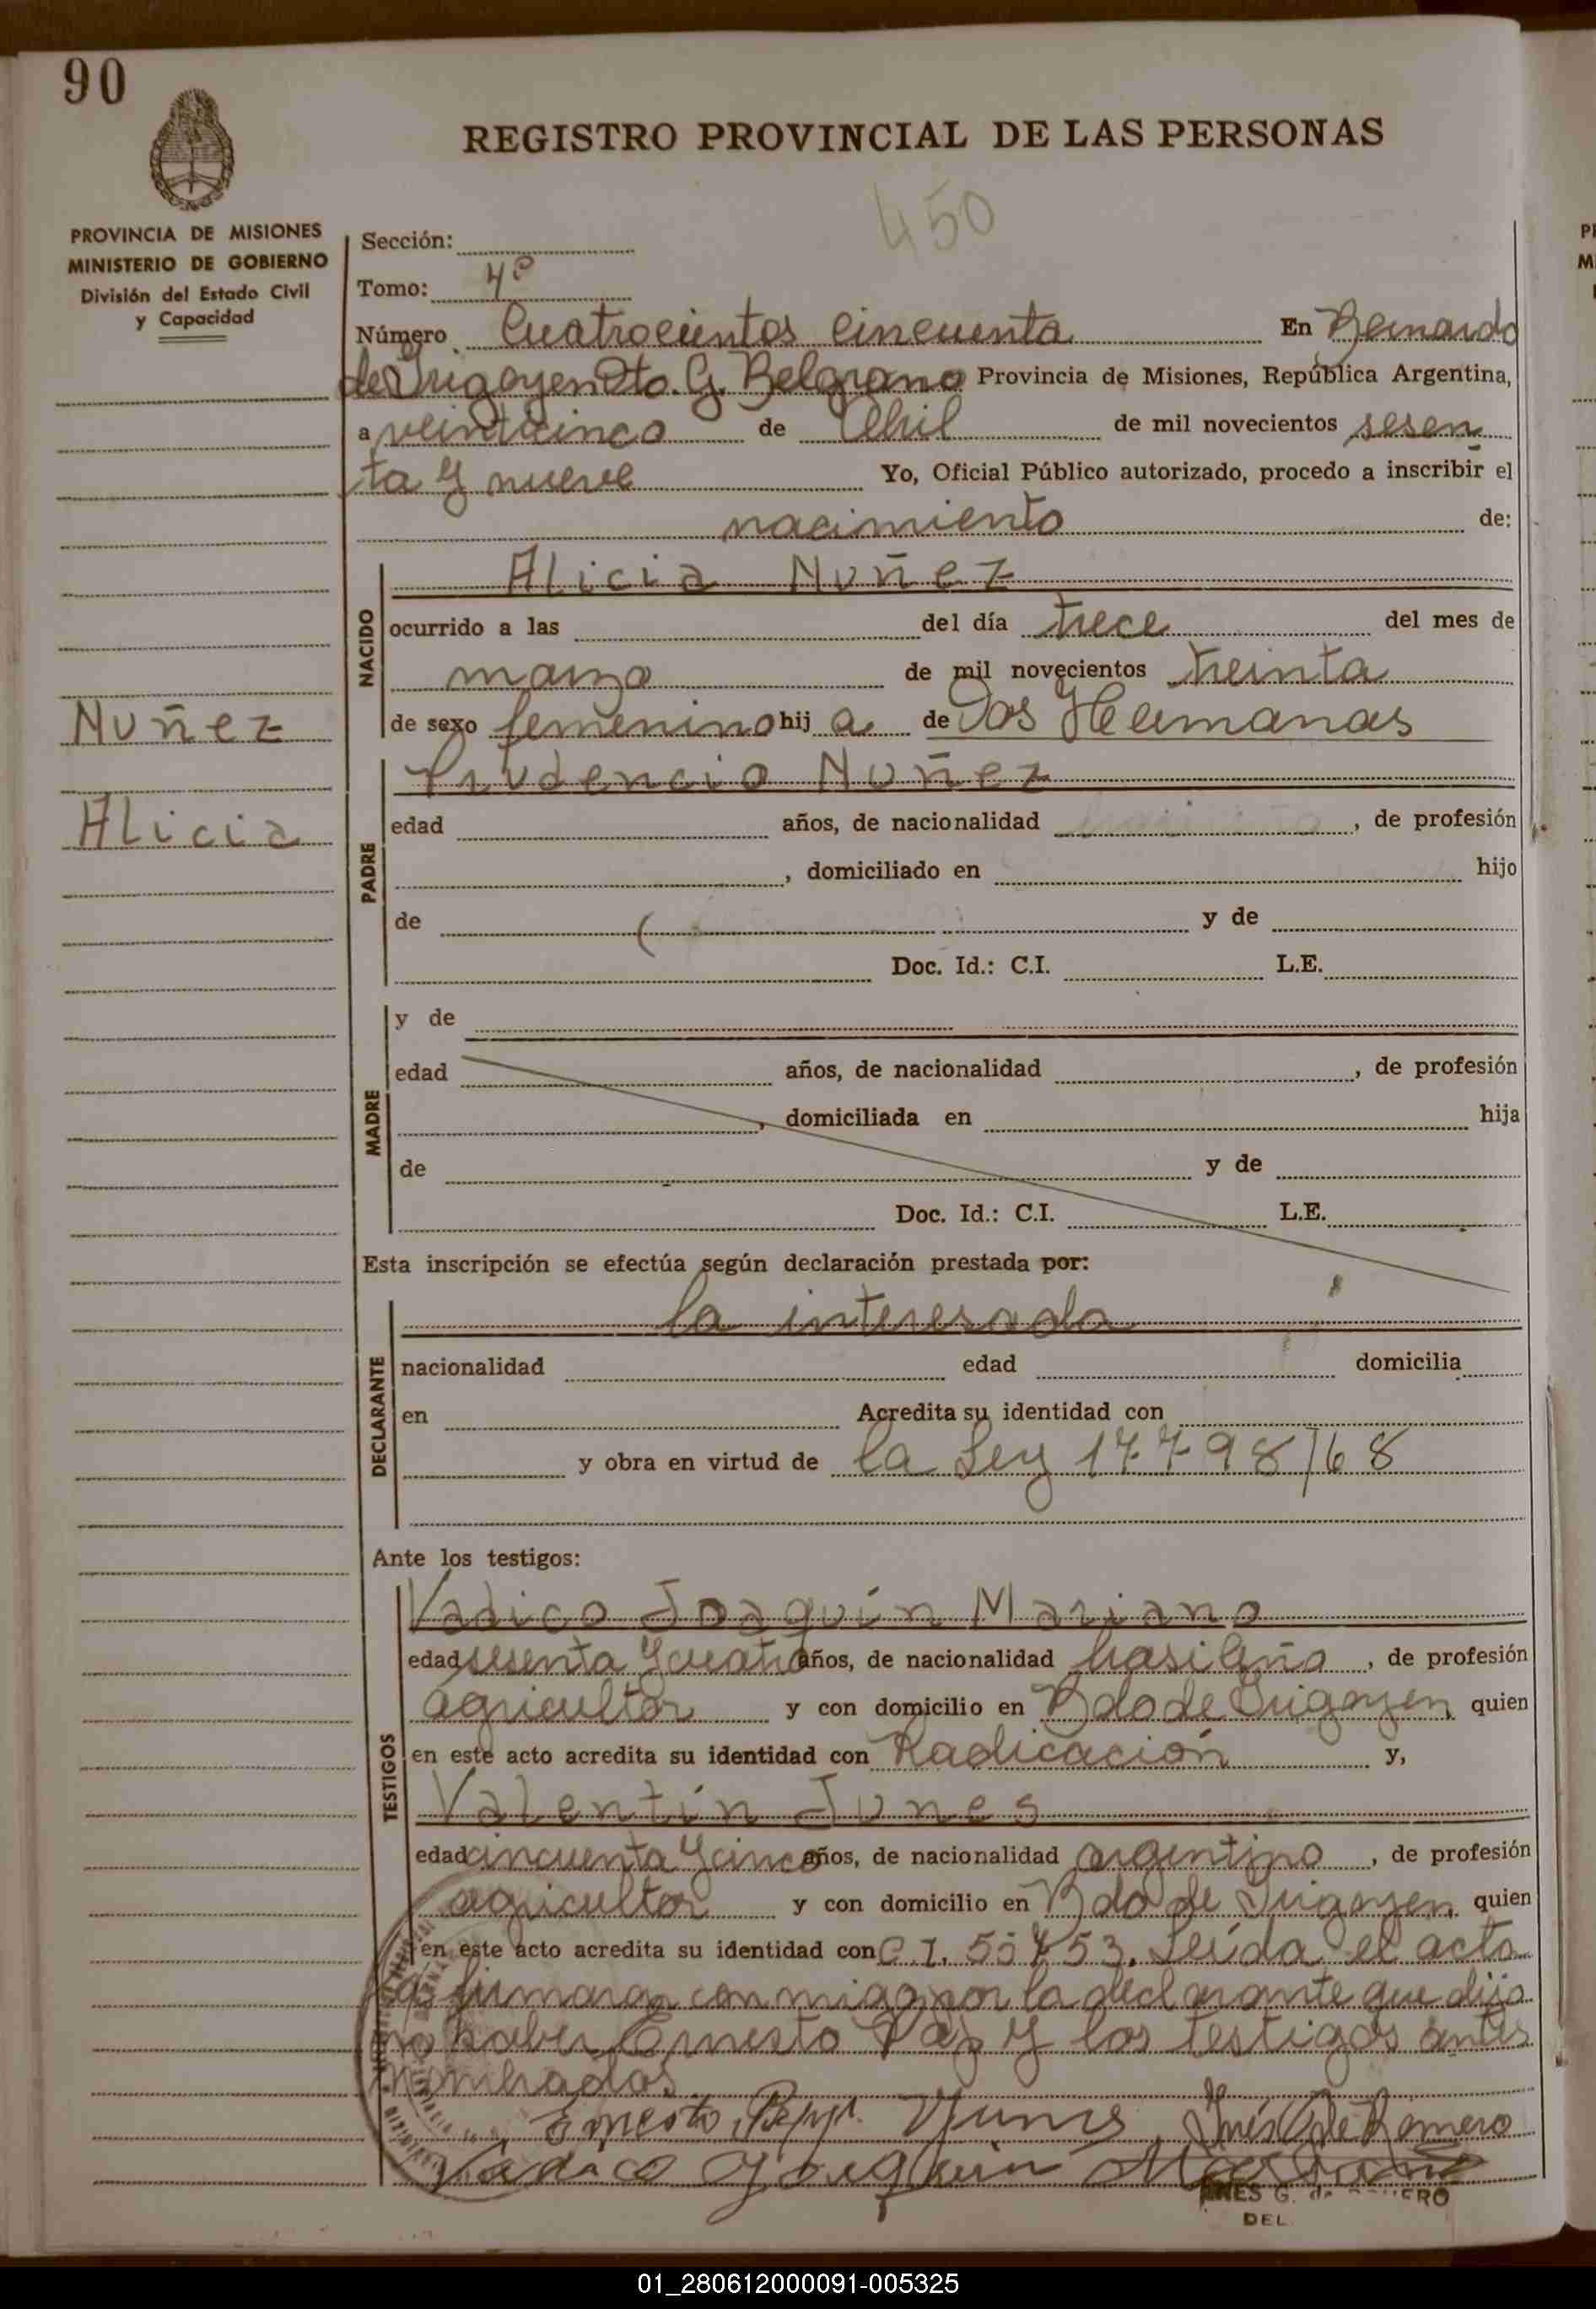 90
REGISTRO PROVINCIAL DE LAS PERSONAS
450
PROVINCIA DE MISIONES
MINISTERIO DE GOBIERNO
División del Estado Civil
y Capacidad
Sección:
Tomo: 4º
Número Cuatrocientos cincuenta En Bernardo
de Irigoyen Dto. G. Belgrano Provincia de Misiones, República Argentina,
a veinticinco de Abril de mil novecientos sesen
ta y nueve Yo, Oficial Público autorizado, procedo a inscribir el
nacimiento de:
NACIDO
Alicia Nuñez
ocurrido a las del día trece del mes de
marzo de mil novecientos treinta
de sexo femenino hij a de Dos Hermanas
Nuñez
Alicia
PADRE
Prudencio Nuñez
edad años, de nacionalidad , de profesión
, domiciliado en hijo
de y de
Doc. Id.: C.I. L.E.
MADRE
y de
edad años, de nacionalidad , de profesión
, domiciliada en hija
de y de
Doc. Id.: C.I. L.E.
Esta inscripción se efectúa según declaración prestada por:
DECLARANTE
la interesada
nacionalidad edad domicilia
en Acredita su identidad con
y obra en virtud de la Ley 17798/68
Ante los testigos:
TESTIGOS
Vadico Joaquín Mariano
edad sesenta y cuatro años, de nacionalidad brasileño, de profesión
agricultor y con domicilio en Bdo de Irigoyen quien
en este acto acredita su identidad con Radicación y,
Valentín Junes
edad cincuenta y cinco años, de nacionalidad argentino, de profesión
agricultor y con domicilio en Bdo de Irigoyen quien
en este acto acredita su identidad con C.I. 55453. Leída el acta
firmaron conmigo, por la declarante que dijo
no saber Ernesto y los testigos antes
nombrados
Ernesto Inés G de Romero
Vadico Joaquin
INES G. de ROMERO
DEL
01_280612000091-005325